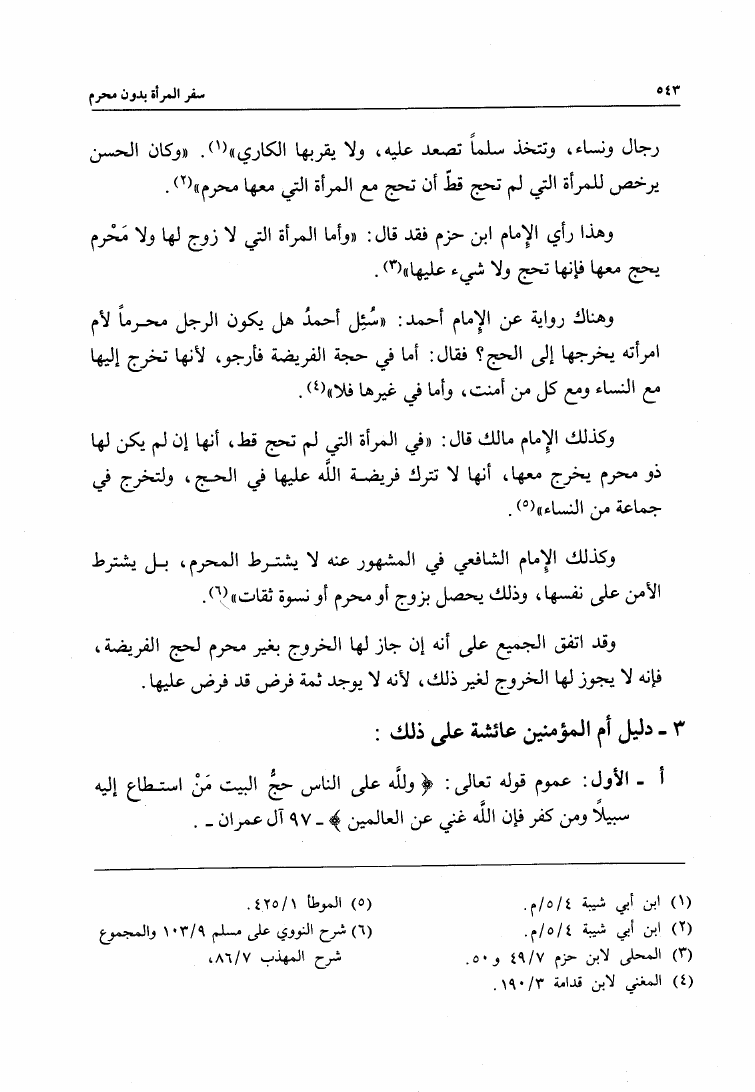 ٥٤٣ سفر المرأة بدون محرم
رجال ونساء، وتتخذ سلماً تصعد عليه، ولا يقربها الكاري»(١). «وكان الحسن
يرخص للمرأة التي لم تحج قطّ أن تحج مع المرأة التي معها محرم»(٢).
وهذا رأي الإمام ابن حزم فقد قال: «وأما المرأة التي لا زوج لها ولا مَحْرم
يحج معها فإنها تحج ولا شيء عليها»(٣).
وهناك رواية عن الإمام أحمد: «سُئِل أحمدُ هل يكون الرجل محرماً لأم
امرأته يخرجها إلى الحج؟ فقال: أما في حجة الفريضة فأرجو، لأنها تخرج إليها
مع النساء ومع كل من أمنت، وأما في غيرها فلا»(٤).
وكذلك الإمام مالك قال: «في المرأة التي لم تحج قط، أنها إن لم يكن لها
ذو محرم يخرج معها، أنها لا تترك فريضة اللَّه عليها في الحج، ولتخرج في
جماعة من النساء»(٥).
وكذلك الإمام الشافعي في المشهور عنه لا يشترط المحرم، بل يشترط
الأمن على نفسها، وذلك يحصل بزوج أو محرم أو نسوة ثقات»(٦).
وقد اتفق الجميع على أنه إن جاز لها الخروج بغير محرم لحج الفريضة،
فإنه لا يجوز لها الخروج لغير ذلك، لأنه لا يوجد ثمة فرض قد فرض عليها.
٣ ـ دليل أم المؤمنين عائشة على ذلك :
أ ـ الأول: عموم قوله تعالى: ﴿ وللَّه على الناس حجُّ البيت مَنْ استطاع إليه
سبيلاً ومن كفر فإن اللَّه غني عن العالمين ﴾ ـ ٩٧ آل عمران ـ .
(١) ابن أبي شيبة ٥/٤/م.
(٢) ابن أبي شيبة ٥/٤/م.
(٣) المحلى لابن حزم ٤٩/٧ و ٥٠.
(٤) المغني لابن قدامة ١٩٠/٣.
(٥) الموطأ ٤٢٥/١.
(٦) شرح النووي على مسلم ١٠٣/٩ والمجموع
شرح المهذب ٨٦/٧،